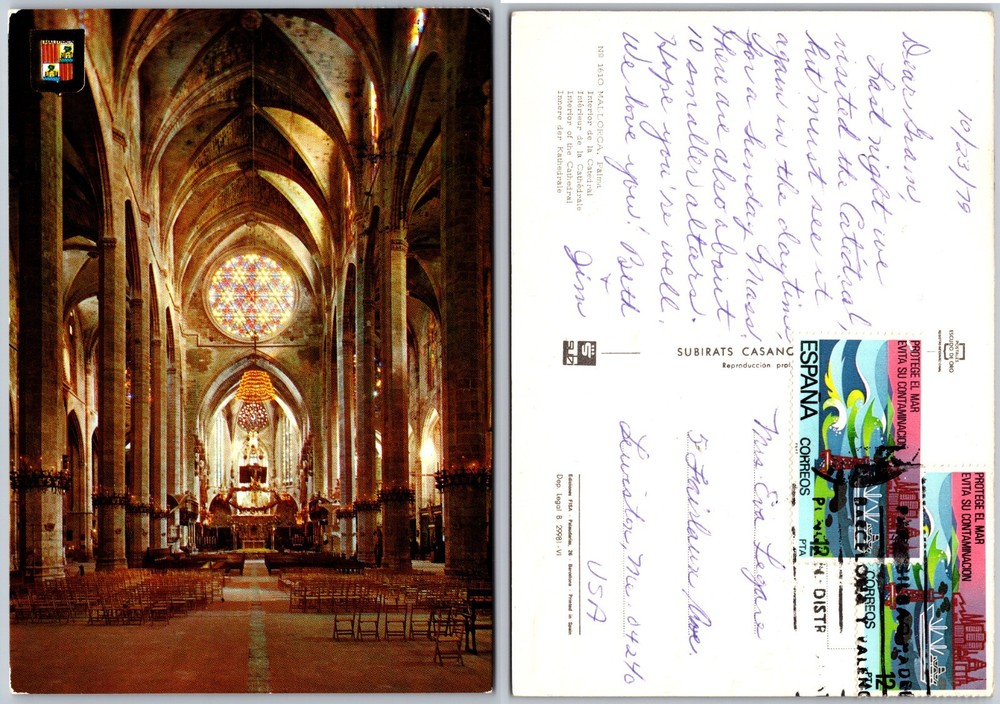 10/23/79
Dear Gram,
Last night we
visited the Catedral,
but must see it
again in the daytime,
for a Sunday Mass.
There are also about
10 smaller altars.
Hope you're well.
We love you! Beth
+
Jim
Nº 1610 MALLORCA. Palma
Interior de la Catedral
Intérieur de la Cathédrale
Interior of the Cathedral
Innere der Kathedrale
POSTALES
ESCUDO DE ORO
SUBIRATS CASANO
Reproducción pro
Mrs. Eva Legare
5 Fairlawn Ave.
Lewister, Me. 04240
USA
Ediciones FISA - Palaudarias, 26 - Barcelona - Printed in Spain
Dep. Legal B. 29981-VI
ESPAÑA CORREOS
12 PTA
PROTEGE EL MAR
EVITA SU CONTAMINACION
PROTEGE EL MAR
EVITA SU CONTAMINACION
CORREOS
12 PTA
N. DISTR